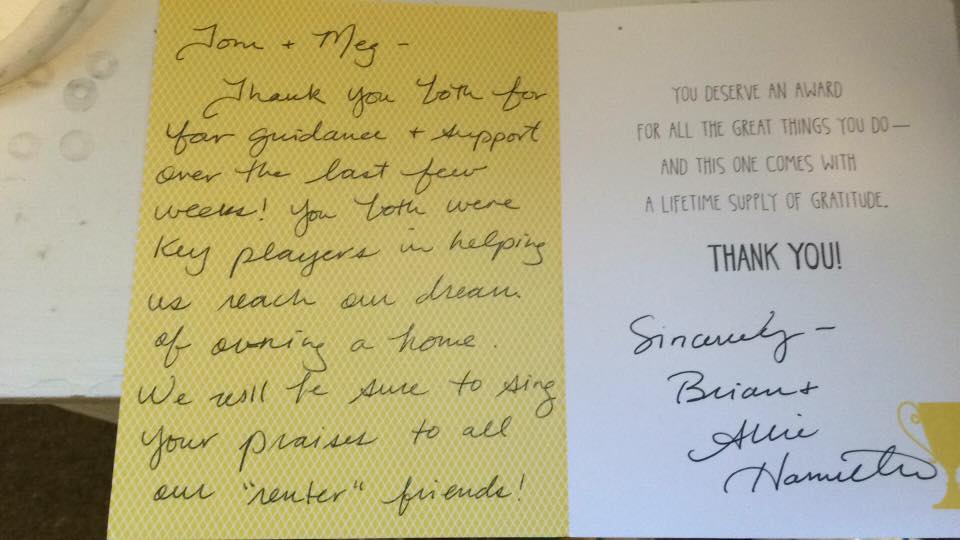 Tom + Meg -
Thank you both for
your guidance + support
over the last few
weeks! You both were
key players in helping
us reach our dream
of owning a home.
We will be sure to sing
your praises to all
our "renter" friends!
YOU DESERVE AN AWARD
FOR ALL THE GREAT THINGS YOU DO—
AND THIS ONE COMES WITH
A LIFETIME SUPPLY OF GRATITUDE.
THANK YOU!
Sincerely -
Brian +
Allie
Hamilton